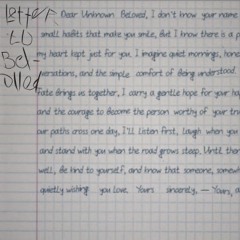 Letter
to
Bel-
oved
Dear Unknown Beloved, I don't know your name
small habits that make you smile, But I know there is a p
my heart kept just for you. I imagine quiet mornings, hone
versations, and the simple comfort of being understood.
Fate brings us together, I carry a gentle hope for your ha
and the courage to become the person worthy of your tru
our paths cross one day, I'll listen first, laugh when you
and stand with you when the road grows steep. Until then
well, Be kind to yourself, and know that someone, somewh
quietly wishing you love. Yours sincerely, — Yours, a